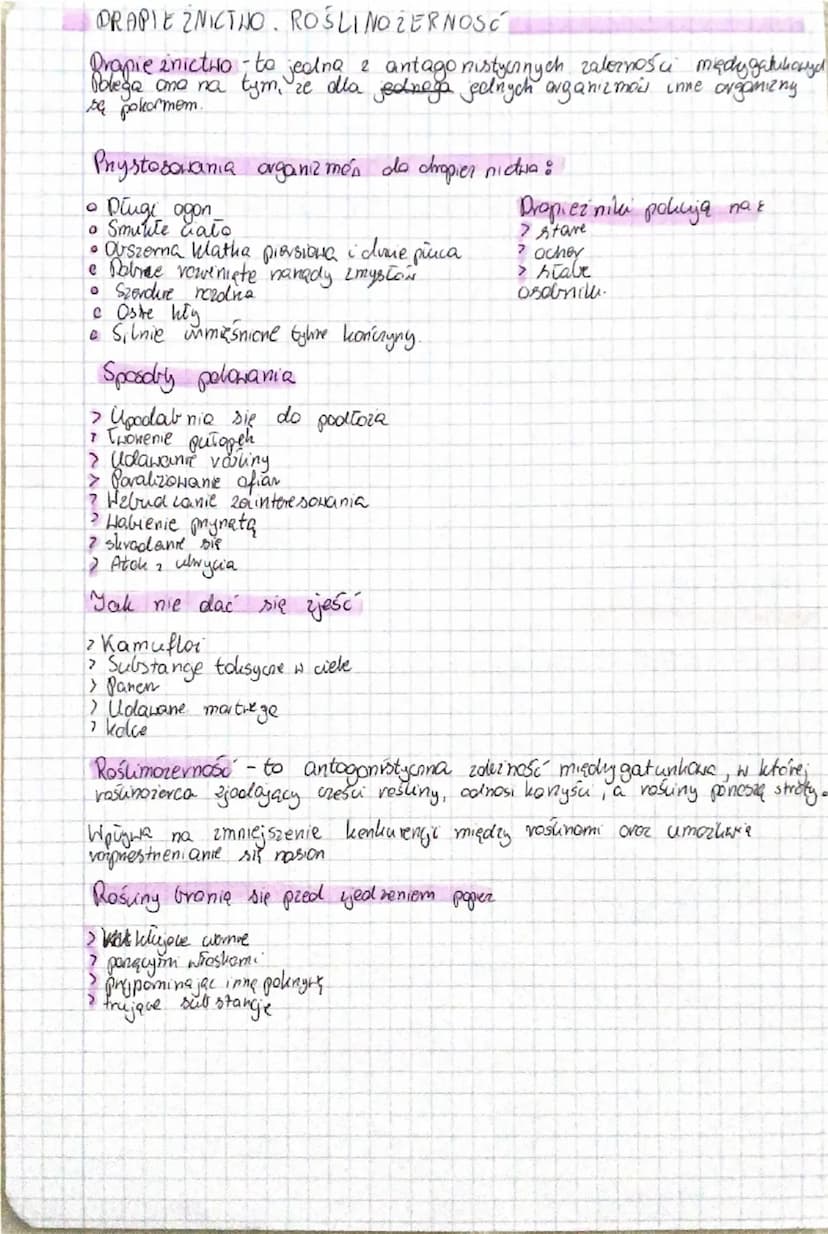 DRAPIEŻNICTWO. ROŚLINOŻERNOŚĆ
Drapieżnictwo - to jedna z antagonistycznych zależności międzygatunkowych
Polega ona na tym, że dla jednego jednych organizmów inne organizmy
są pokarmem.
Przystosowania organizmów do drapieżnictwa:
• Długi ogon
• Smukłe ciało
• Obszerna klatka piersiowa i duże płuca
• Dobrze rozwinięte narządy zmysłów
• Szerokie nozdrza
• Ostre kły
• Silnie umięśnione tylne kończyny.
Drapieżniki polują na:
> stare
> chore
> słabe
osobniki.
Sposoby polowania
> Upodabnia się do podłoża
> Tworzenie pułapek
> Udawanie rośliny
> Paraliżowanie ofiar
> Wzbudzanie zainteresowania
> Wabienie przynętą
> skradanie się
> Atak z ukrycia
Jak nie dać się zjeść
> Kamuflaż
> Substancje toksyczne w ciele
> Pancerz
> Udawanie martwego
> kolce
Roślinożerność - to antagonistyczna zależność międzygatunkowa, w której
roślinożerca zjadający części rośliny, odnosi korzyści, a rośliny ponoszą straty.
Wpływa na zmniejszenie konkurencji między roślinami oraz umożliwia
rozprzestrzenianie się nasion
Rośliny bronią się przed zjedzeniem poprzez
> kłujące ciernie
> parzącymi włoskami
> przypominając inną pokrzywę
> trujące substancje